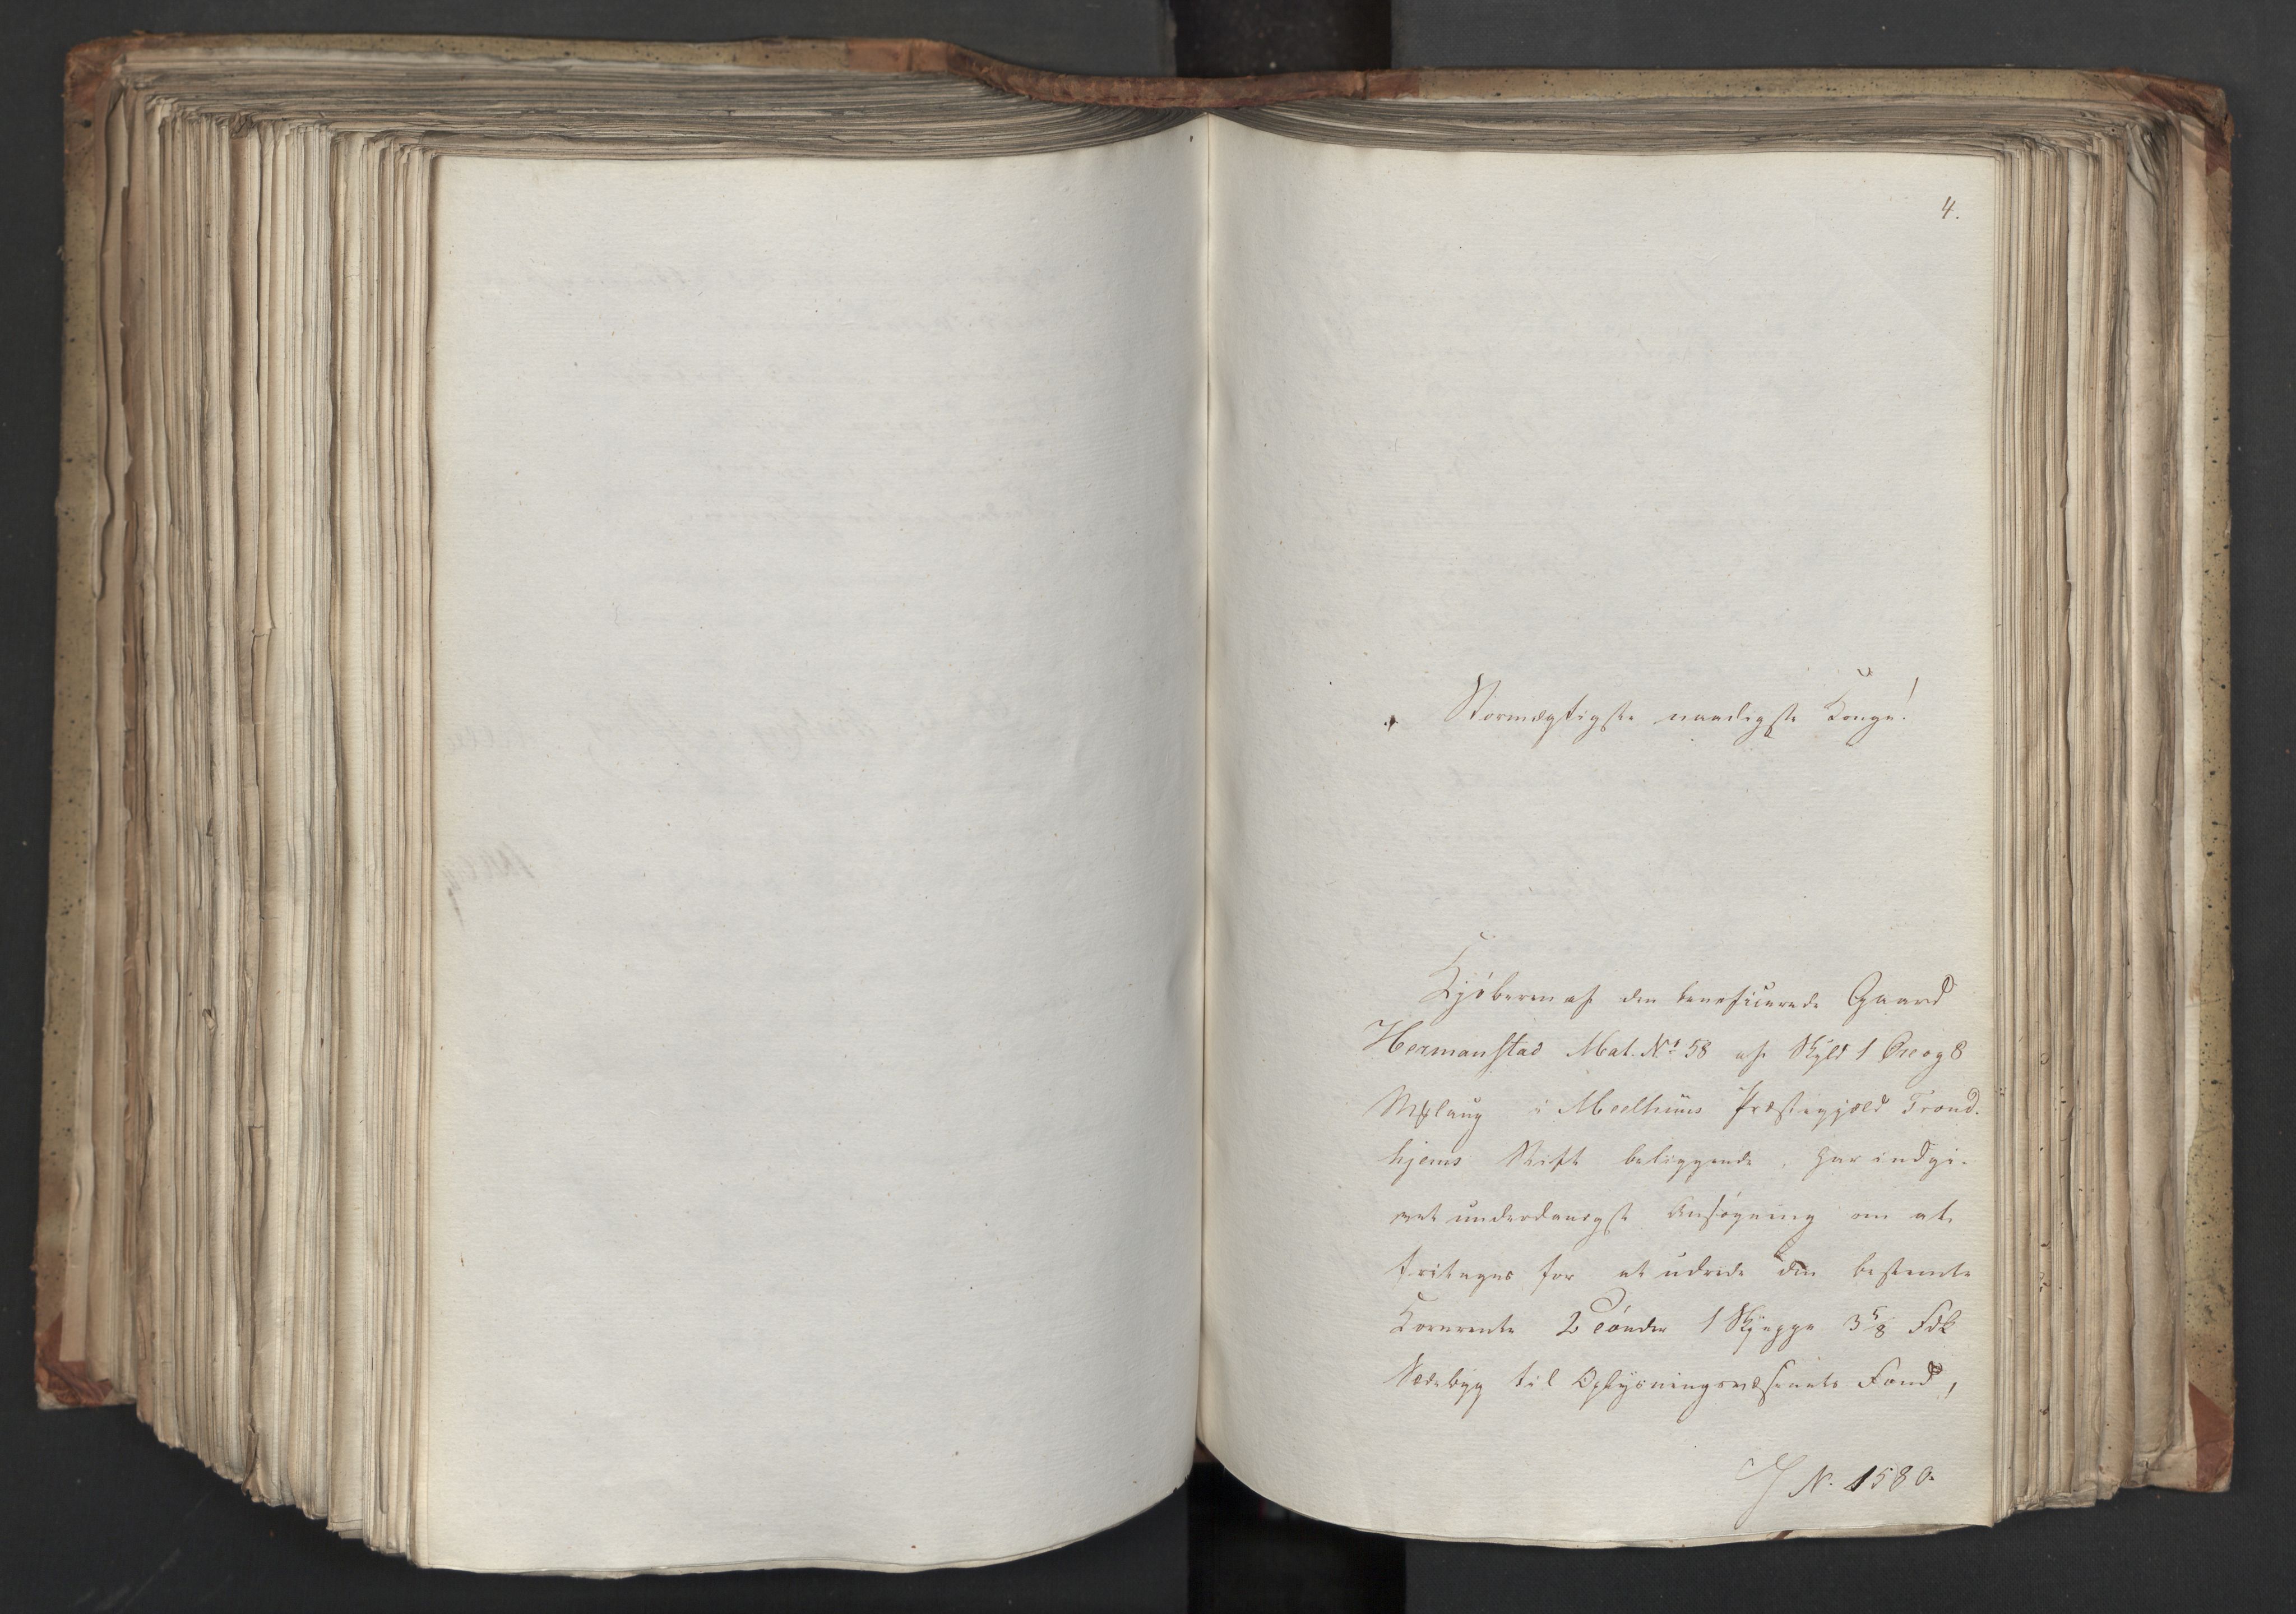 4.
Stormægtigste naadigste Konge!
Kjöberen af den beneficerede Gaard
Hermanstad Mat. No 58 af Skyld 1 Øre og 8
Mklaug i Meelhuus Præstegjeld Trond-
hjems Stift beliggende, har indgi-
vet underdanigst Ansøgning om at
fritages for at udrede den bestemte
Kornrente 2 Tönder 1 Skjeppe 3 5/8 Fdk
Sædebyg til Oplysningsvæsenets Fond,
J N. 1580.